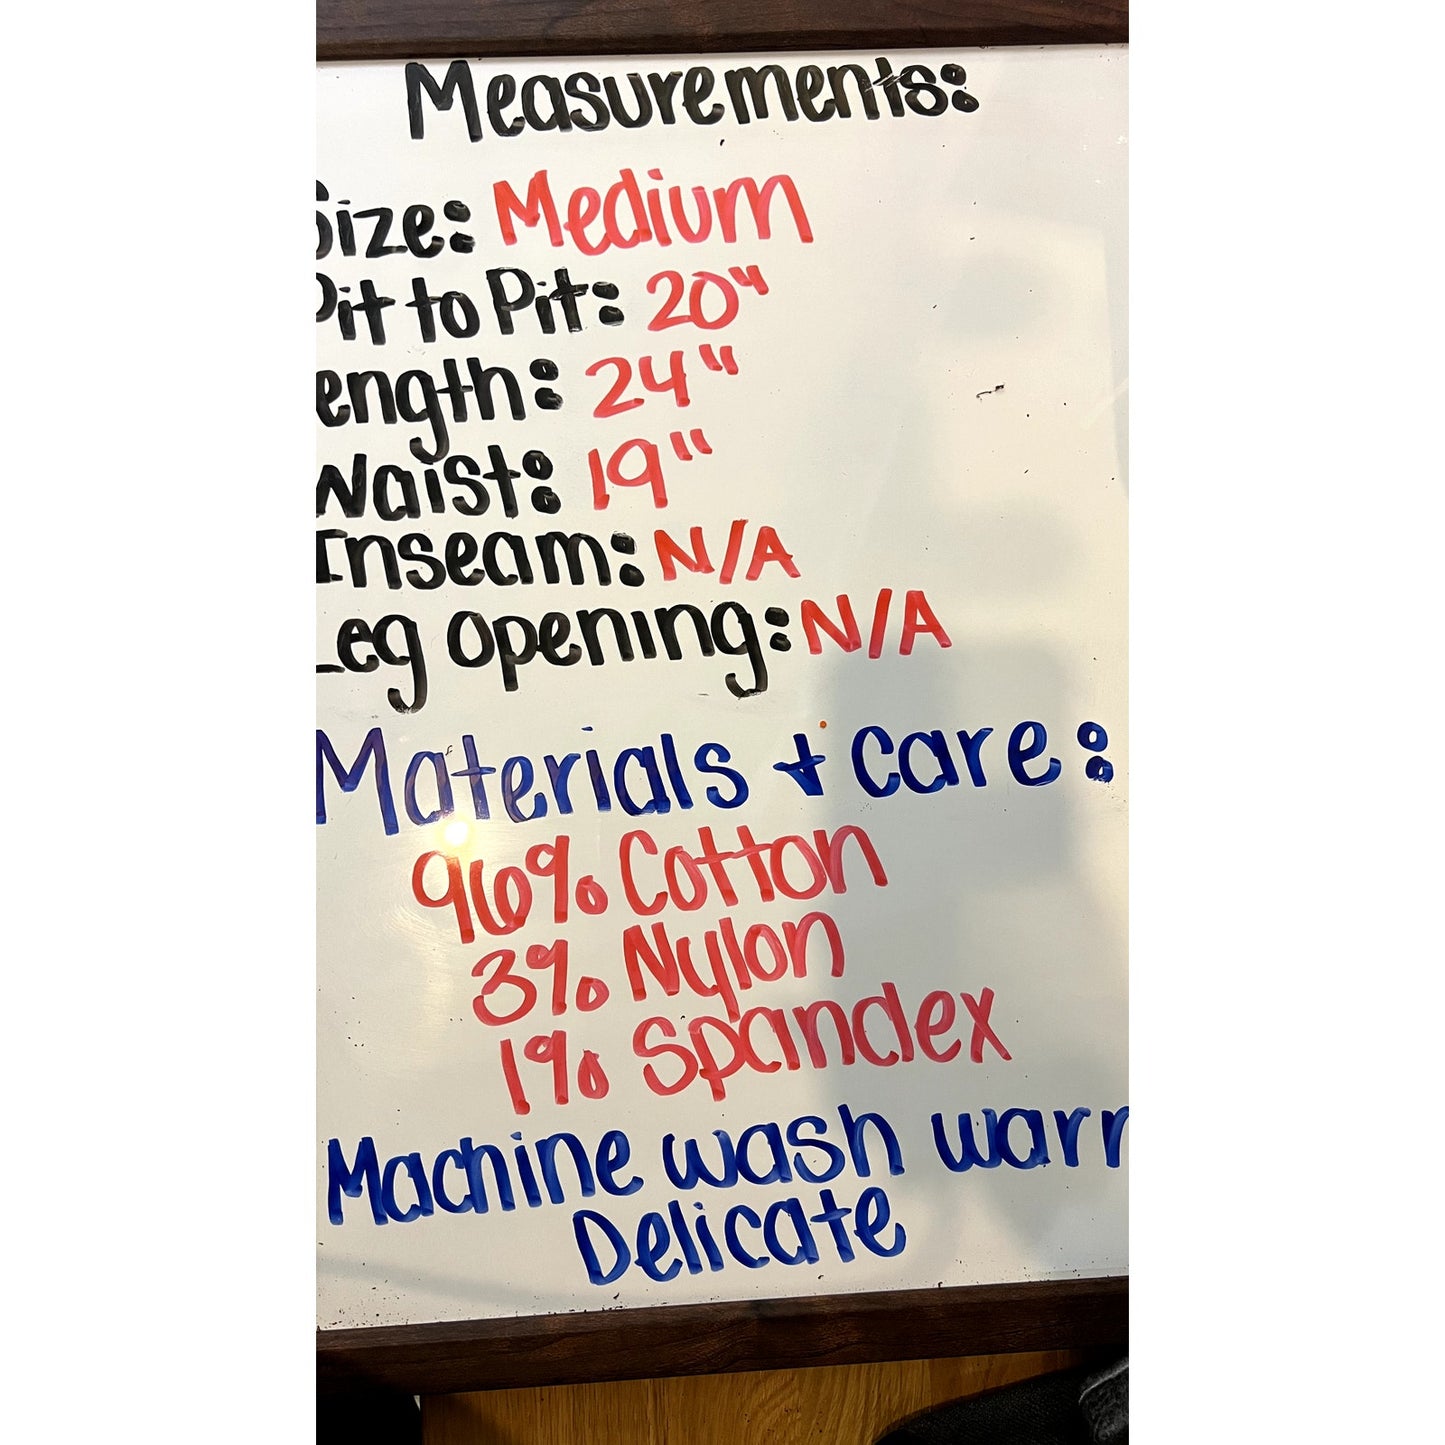 Measurements:
Size: Medium
Pit to Pit: 20"
ength: 24"
Waist: 19"
Inseam: N/A
Leg opening: N/A
Materials + care:
96% Cotton
3% Nylon
1% Spandex
Machine wash warm
Delicate